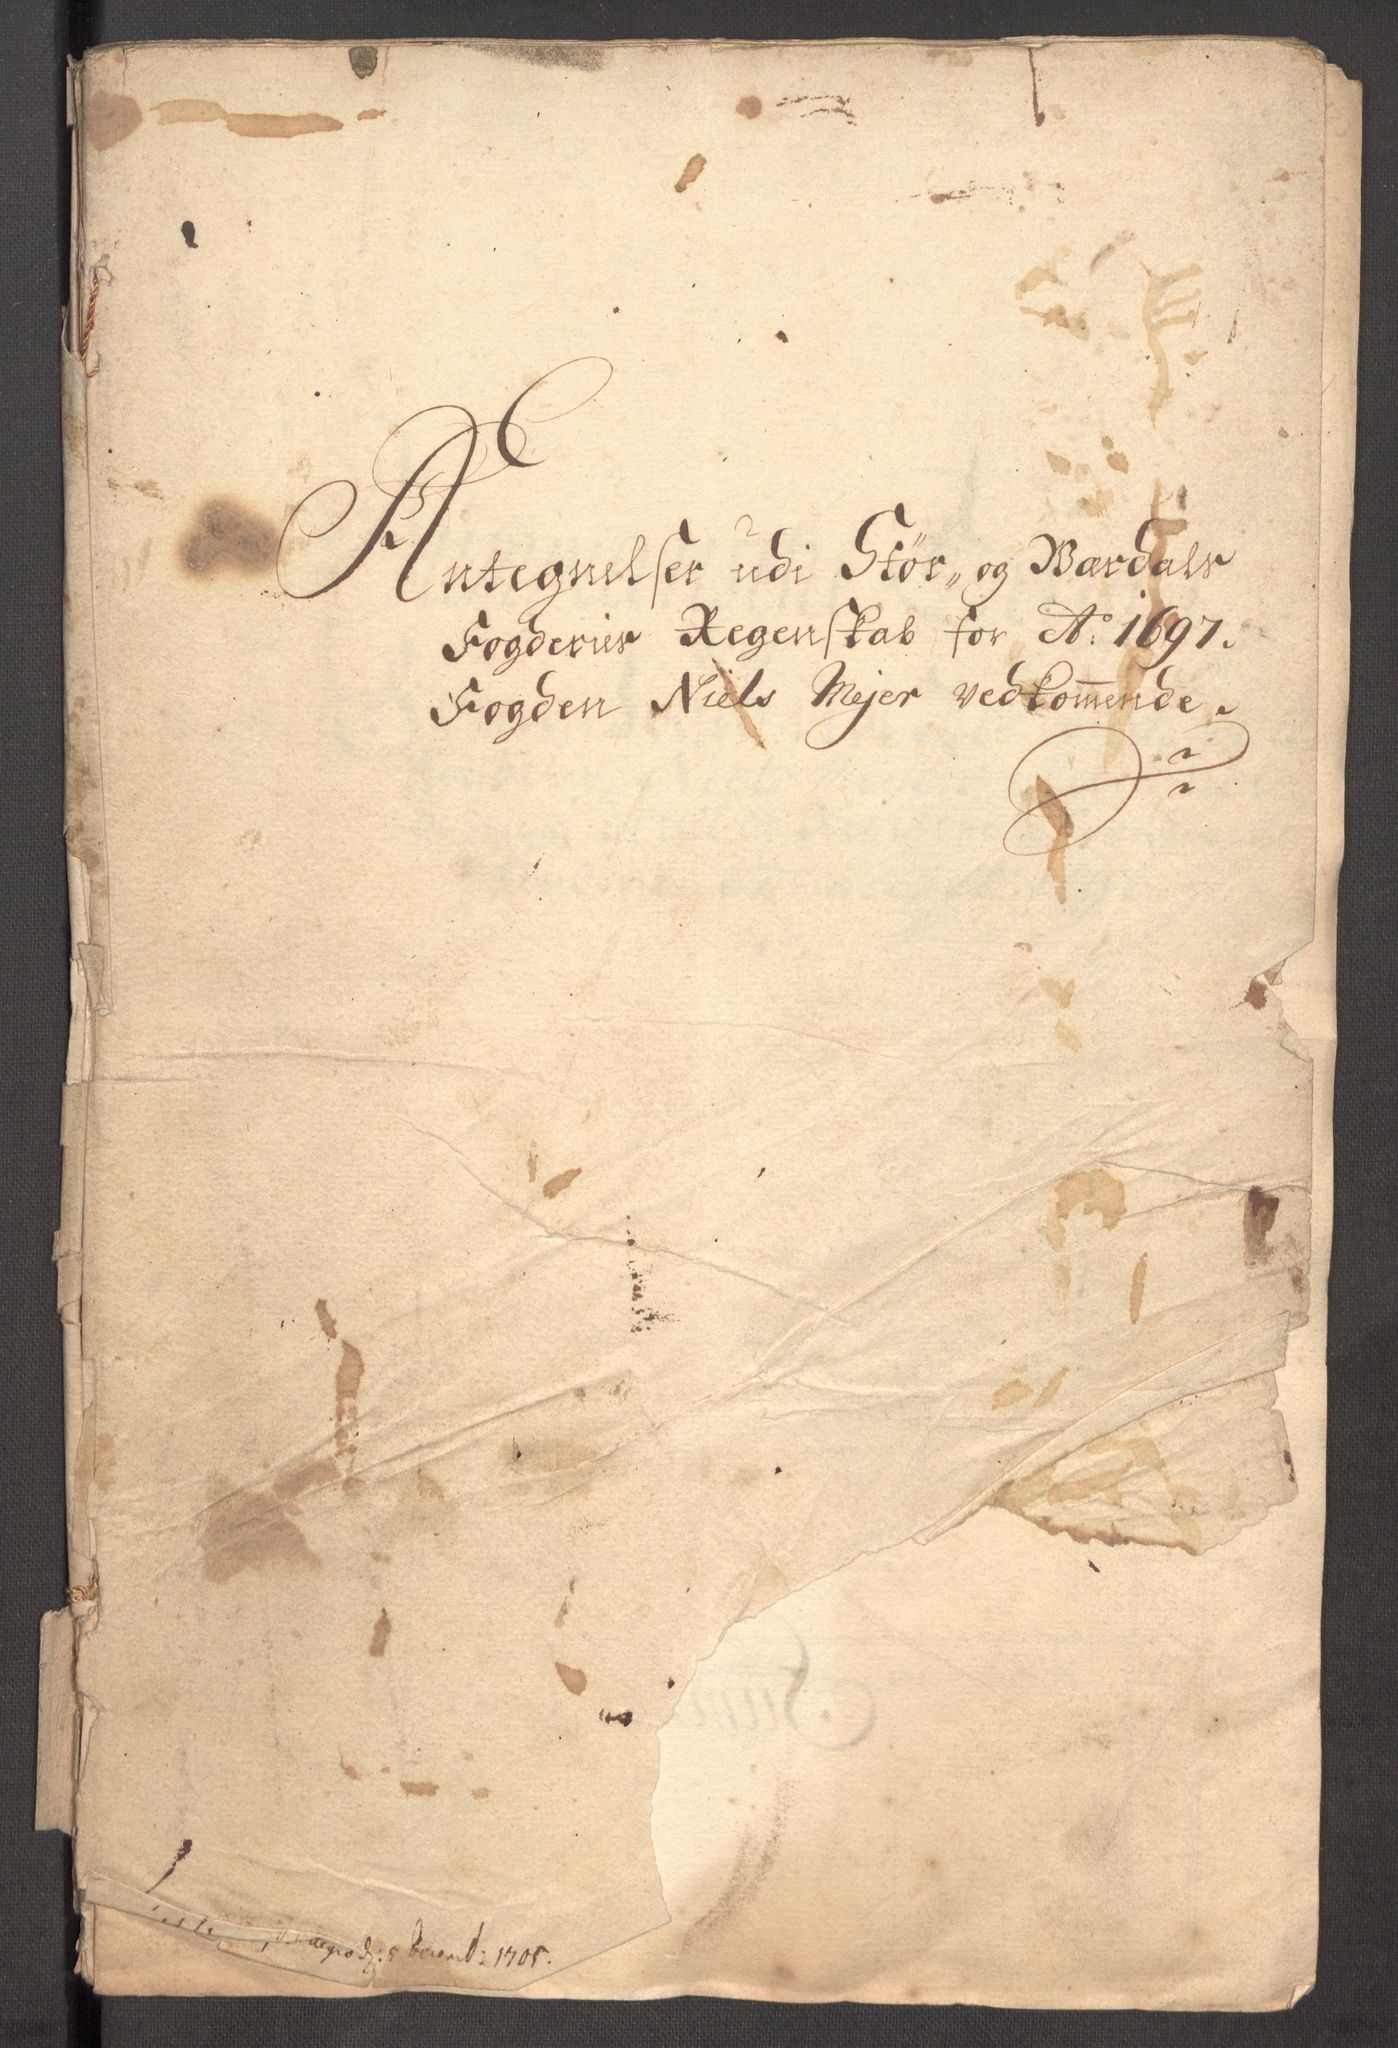 Antegnelser udi Stør„ og Værdals
Fogderier Regenskab for Ao: 1697.
Fogden Niels Mejer vedkom̅ende.
1705.
Sum